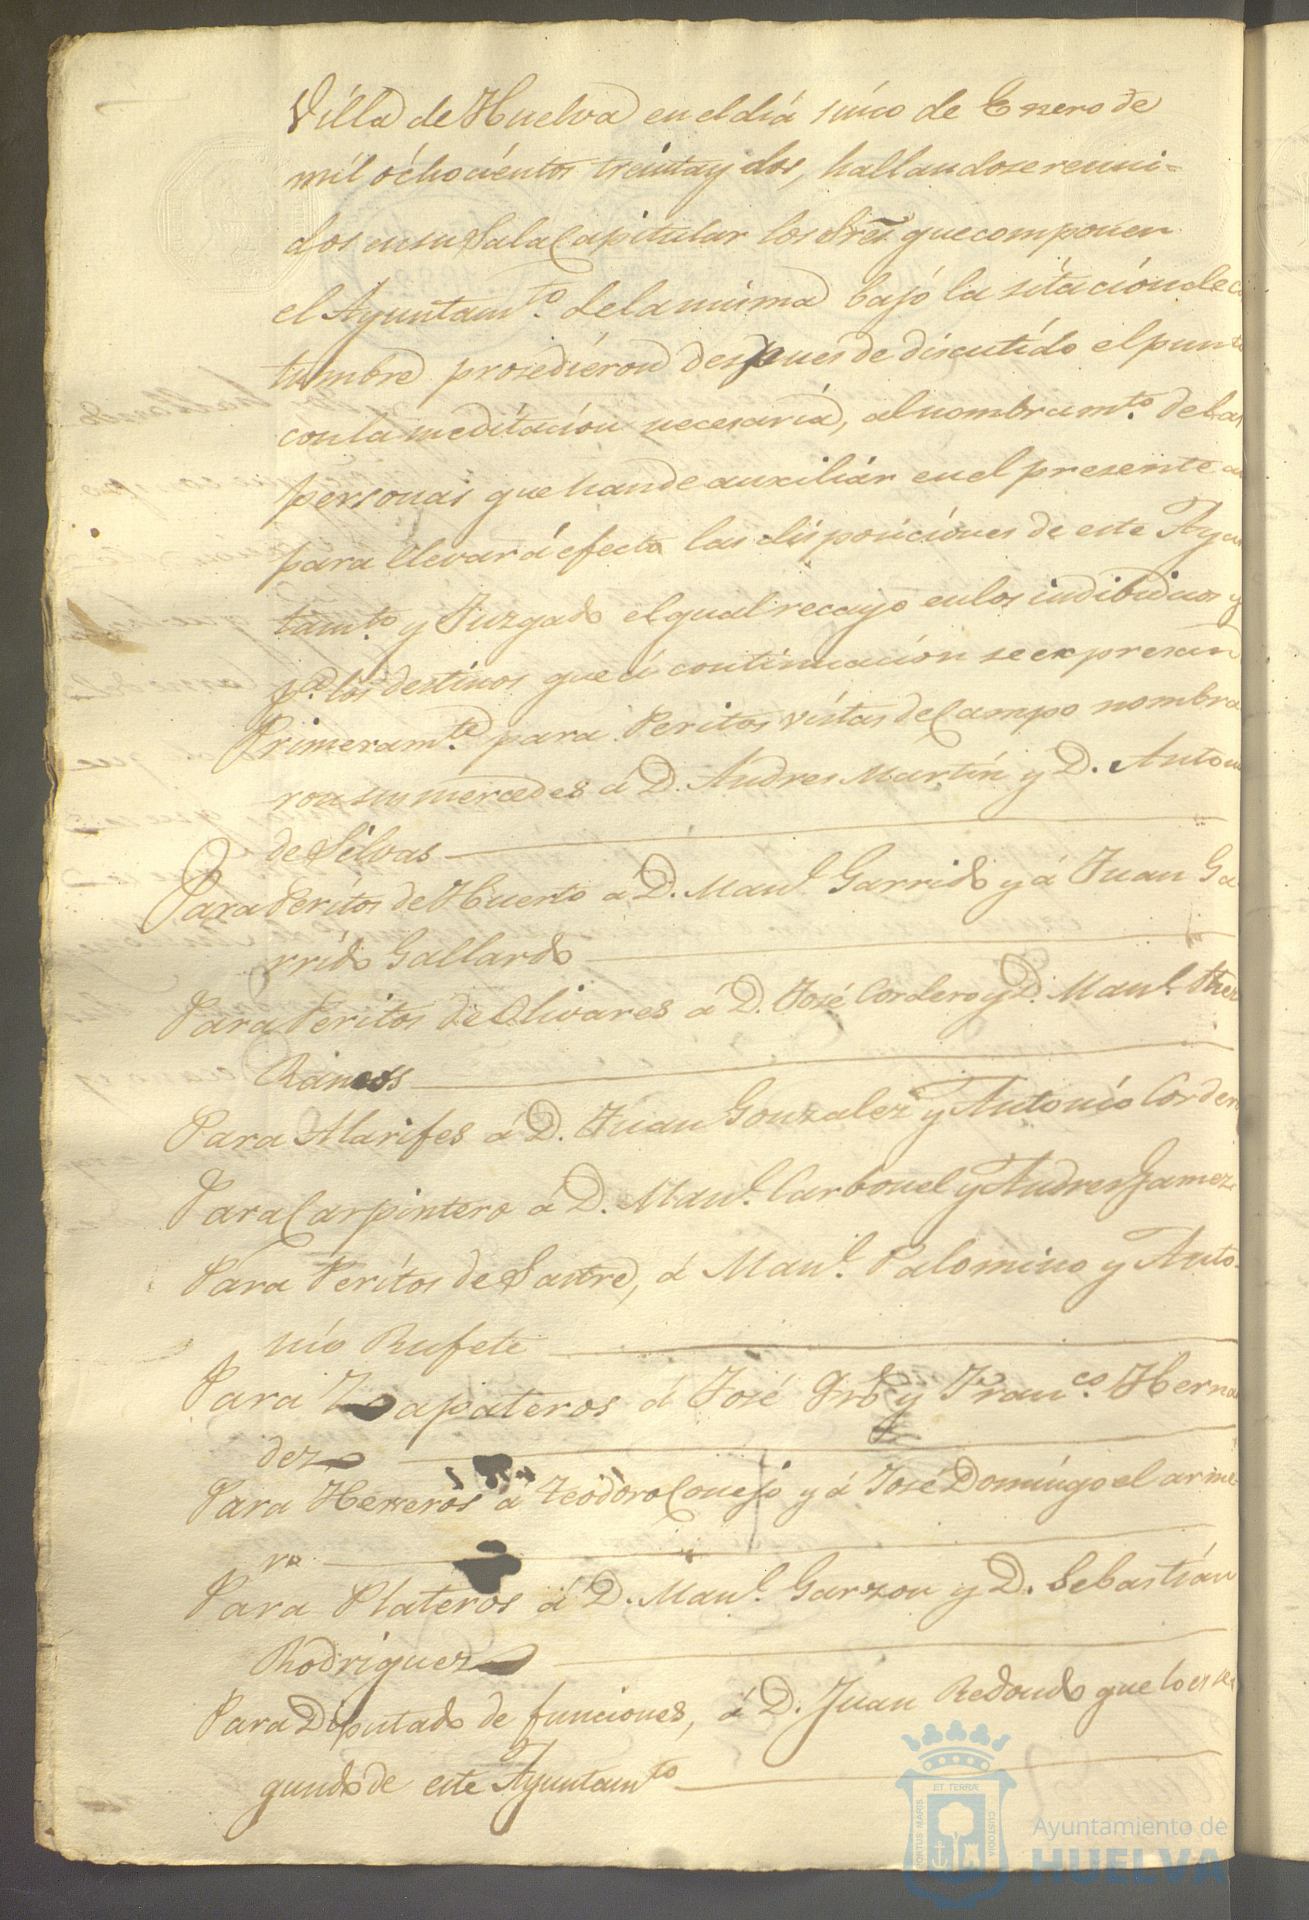 Villa de Huelva en el dia sinco de Enero de
mil ochocientos treinta y dos, hallandose reuni-
dos en su Sala Capitular los Sres. que componen
el Ayuntamto. de la misma bajo la sitacion de
tumbre prosedieron despues de discutido el punto
con la meditacion necesaria, al nombramto. de las
personas que han de auxiliar en el presente
para llevar á efecto las disposiciones de este Ayun
tamto. y Juzgado el qual recayo en los indibiduos y
pa. los destinos que á continuacion se expresan
Primeramte. para Peritos vistas de Campo nombra
ron sus mercedes á D. Andres Martin y D. Anton
de Silvas
Para Peritos de Huerto a D. Manl. Garrido y á Juan Ga
rrido Gallardo
Para Peritos de Olivares á D. José Cordero y D. Manl.
Ramos
Para Alarifes á D. Juan Gonzalez y Antonio Cordero
Para Carpintero á D. Manl. Carbonel y Andres Gamez
Para Peritos de Sastre, á Manl. Palomino y Anto-
nio Rufete
Para Zapateros á José y Franco. Hernan
dez
Para Herreros á Teodoro Conejo y á José Domingo el arme
ro
Para Plateros á D. Manl. Garzon y D. Sebastián
Rodriguez
Para Diputado de funciones, á D. Juan Redondo que lo es se
gundo de este Ayuntamto
ET TERRÆ
PORTUS MARIS
CUSTODIA
Ayuntamiento de
HUELVA